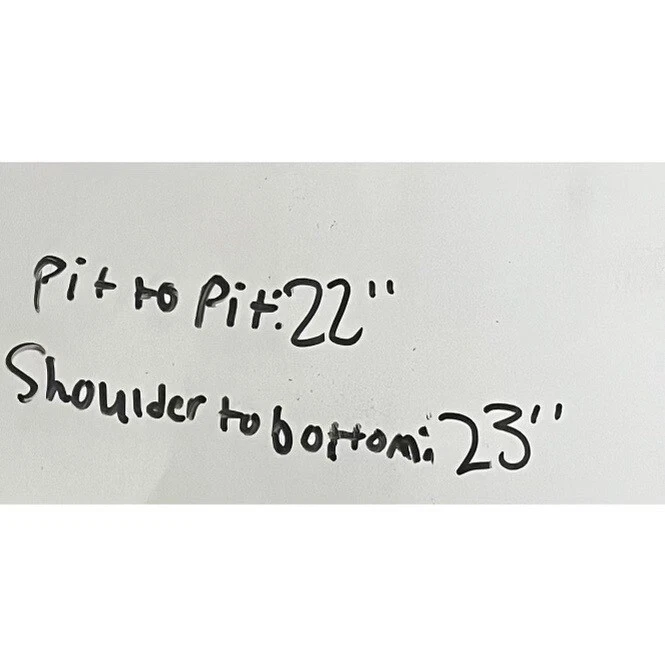 Pit to Pit: 22"
Shoulder to bottom: 23"